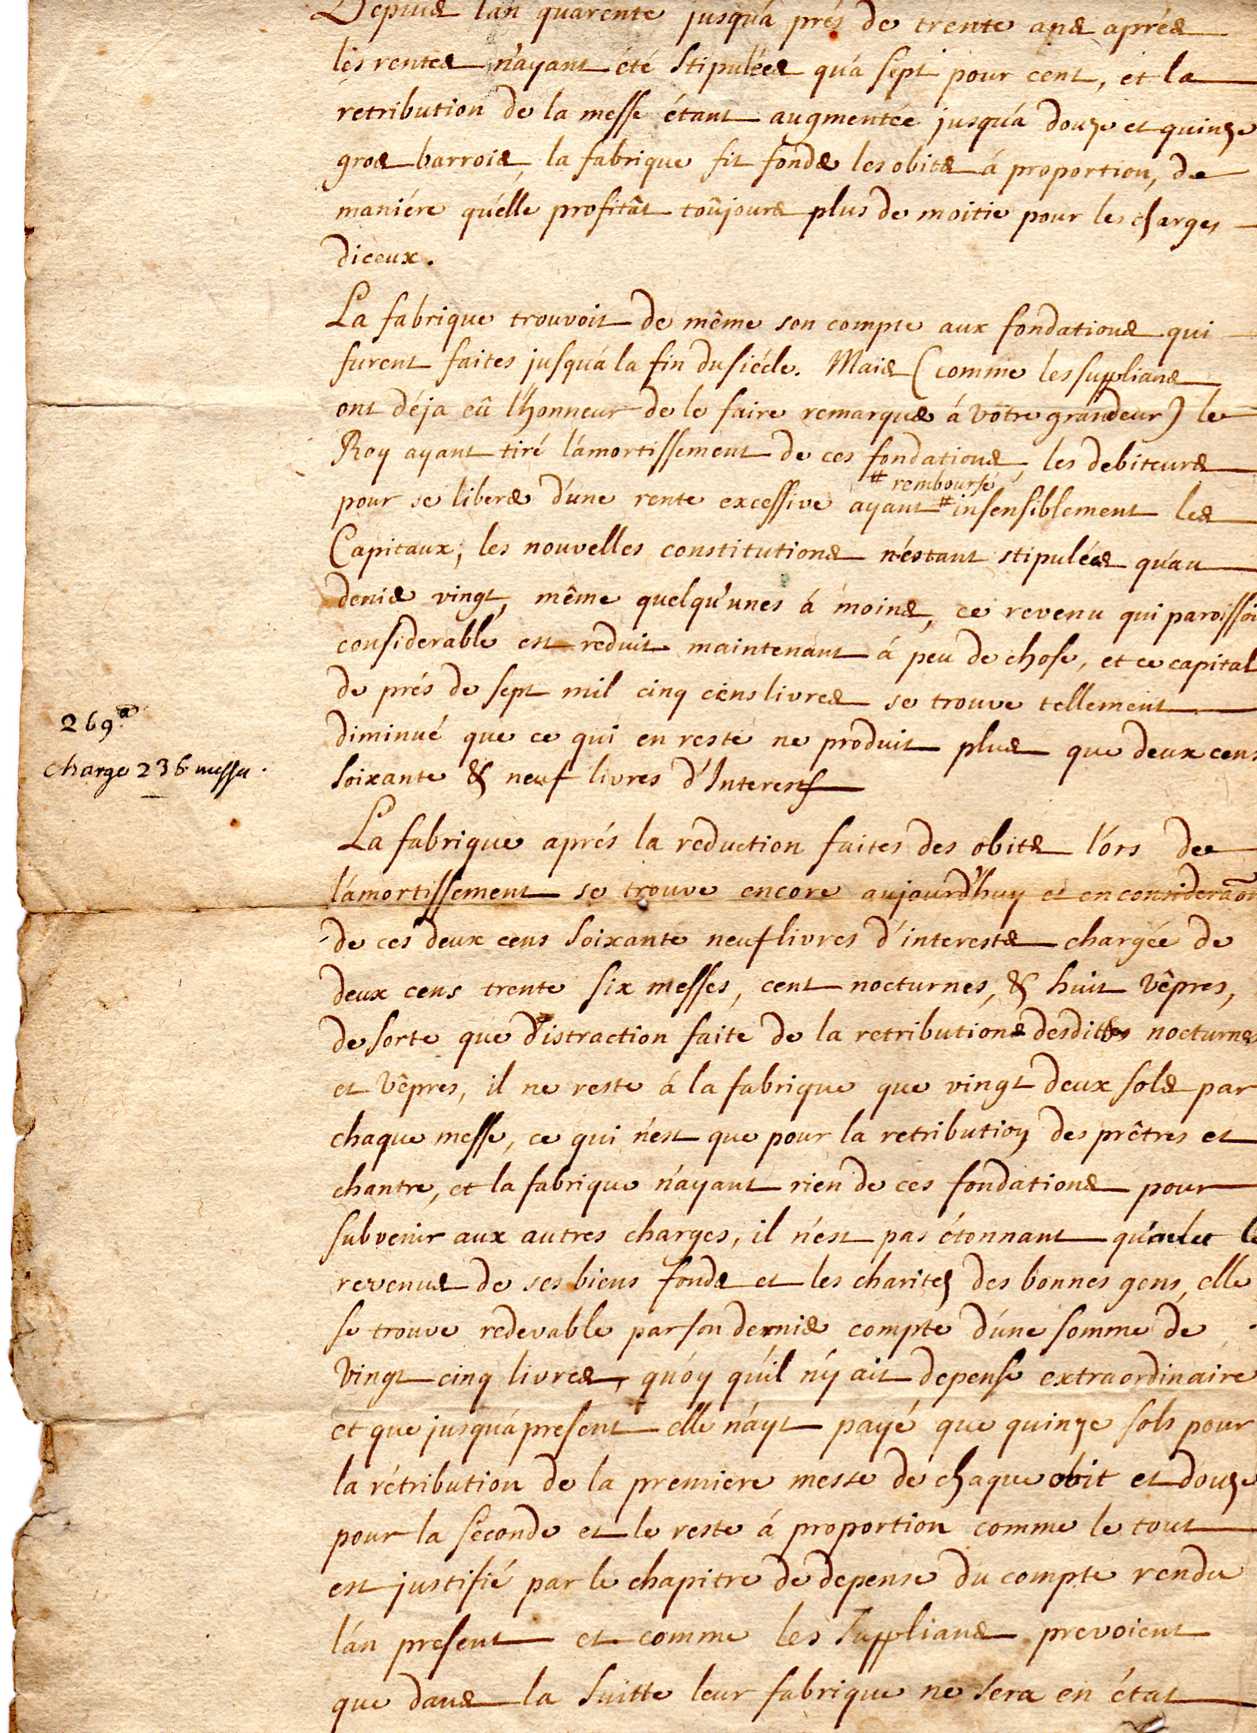 Depuis l'an quarente jusqu'a prés de trente ans aprés
les rentes n'ayant été stipulées qu'a sept pour cent, et la
retribution de la messe étant augmentée jusqu'a douze et quinze
gros barrois, la fabrique fit fonder les obits á proportion, de
maniére qu'elle profitât toûjours plus de moitie pour les charges
d'iceux.
La fabrique trouvoit de même son compte aux fondations qui
furent faites jusqu'a la fin du siécle. Mais (comme les supplians
ont déja eû l'honneur de le faire remarquer á vôtre grandeur) le
Roy ayant tiré l'amortissement de ces fondations, les debiteurs
# rembourse
pour se liberer d'une rente excessive ayant # insensiblement les
Capitaux, les nouvelles constitutions n'estant stipulées qu'au
denier vingt, même quelqu'unes á moins, ce revenu qui paroissoi
considerable est reduit maintenant á peu de chose, et ce capital
de prés de sept mil cinq cens livres se trouve tellement
269.
diminué que ce qui en reste ne produit plus que deux cens
charge 236 messe.
soixante & neuf livres d'Interest
La fabrique aprés la reduction faites des obits l'ors de
l'amortissement se trouve encore aujourd'huy et en consideraon
de ces deux cens soixante neuf livres d'interests chargée de
deux cens trente six messes, cent nocturnes, & huit vêpres,
de sorte que distraction faite de la retributions desdittes nocturnes
et vêpres, il ne reste á la fabrique que vingt deux sols par
chaque messe, ce qui n'est que pour la retribution des prêtres et
chantre, et la fabrique n'ayant rien de ces fondations pour
subvenir aux autres charges, il n'est pas étonnant qu'avec le
revenus de ses biens fonds et les charitez des bonnes gens, elle
se trouve redevable par son dernier compte d'une somme de
vingt cinq livres, quóy qu'il n'y ait depense extraordinaire
et que jusqu'a present elle n'ayt payé que quinze sols pour
la rétribution de la premiere messe de chaque obit et douze
pour la seconde et le reste á proportion comme le tout
est justifié par le chapitre de depense du compte rendu
l'an present et comme les supplians prevoient
que dans la suitte leur fabrique ne sera en état